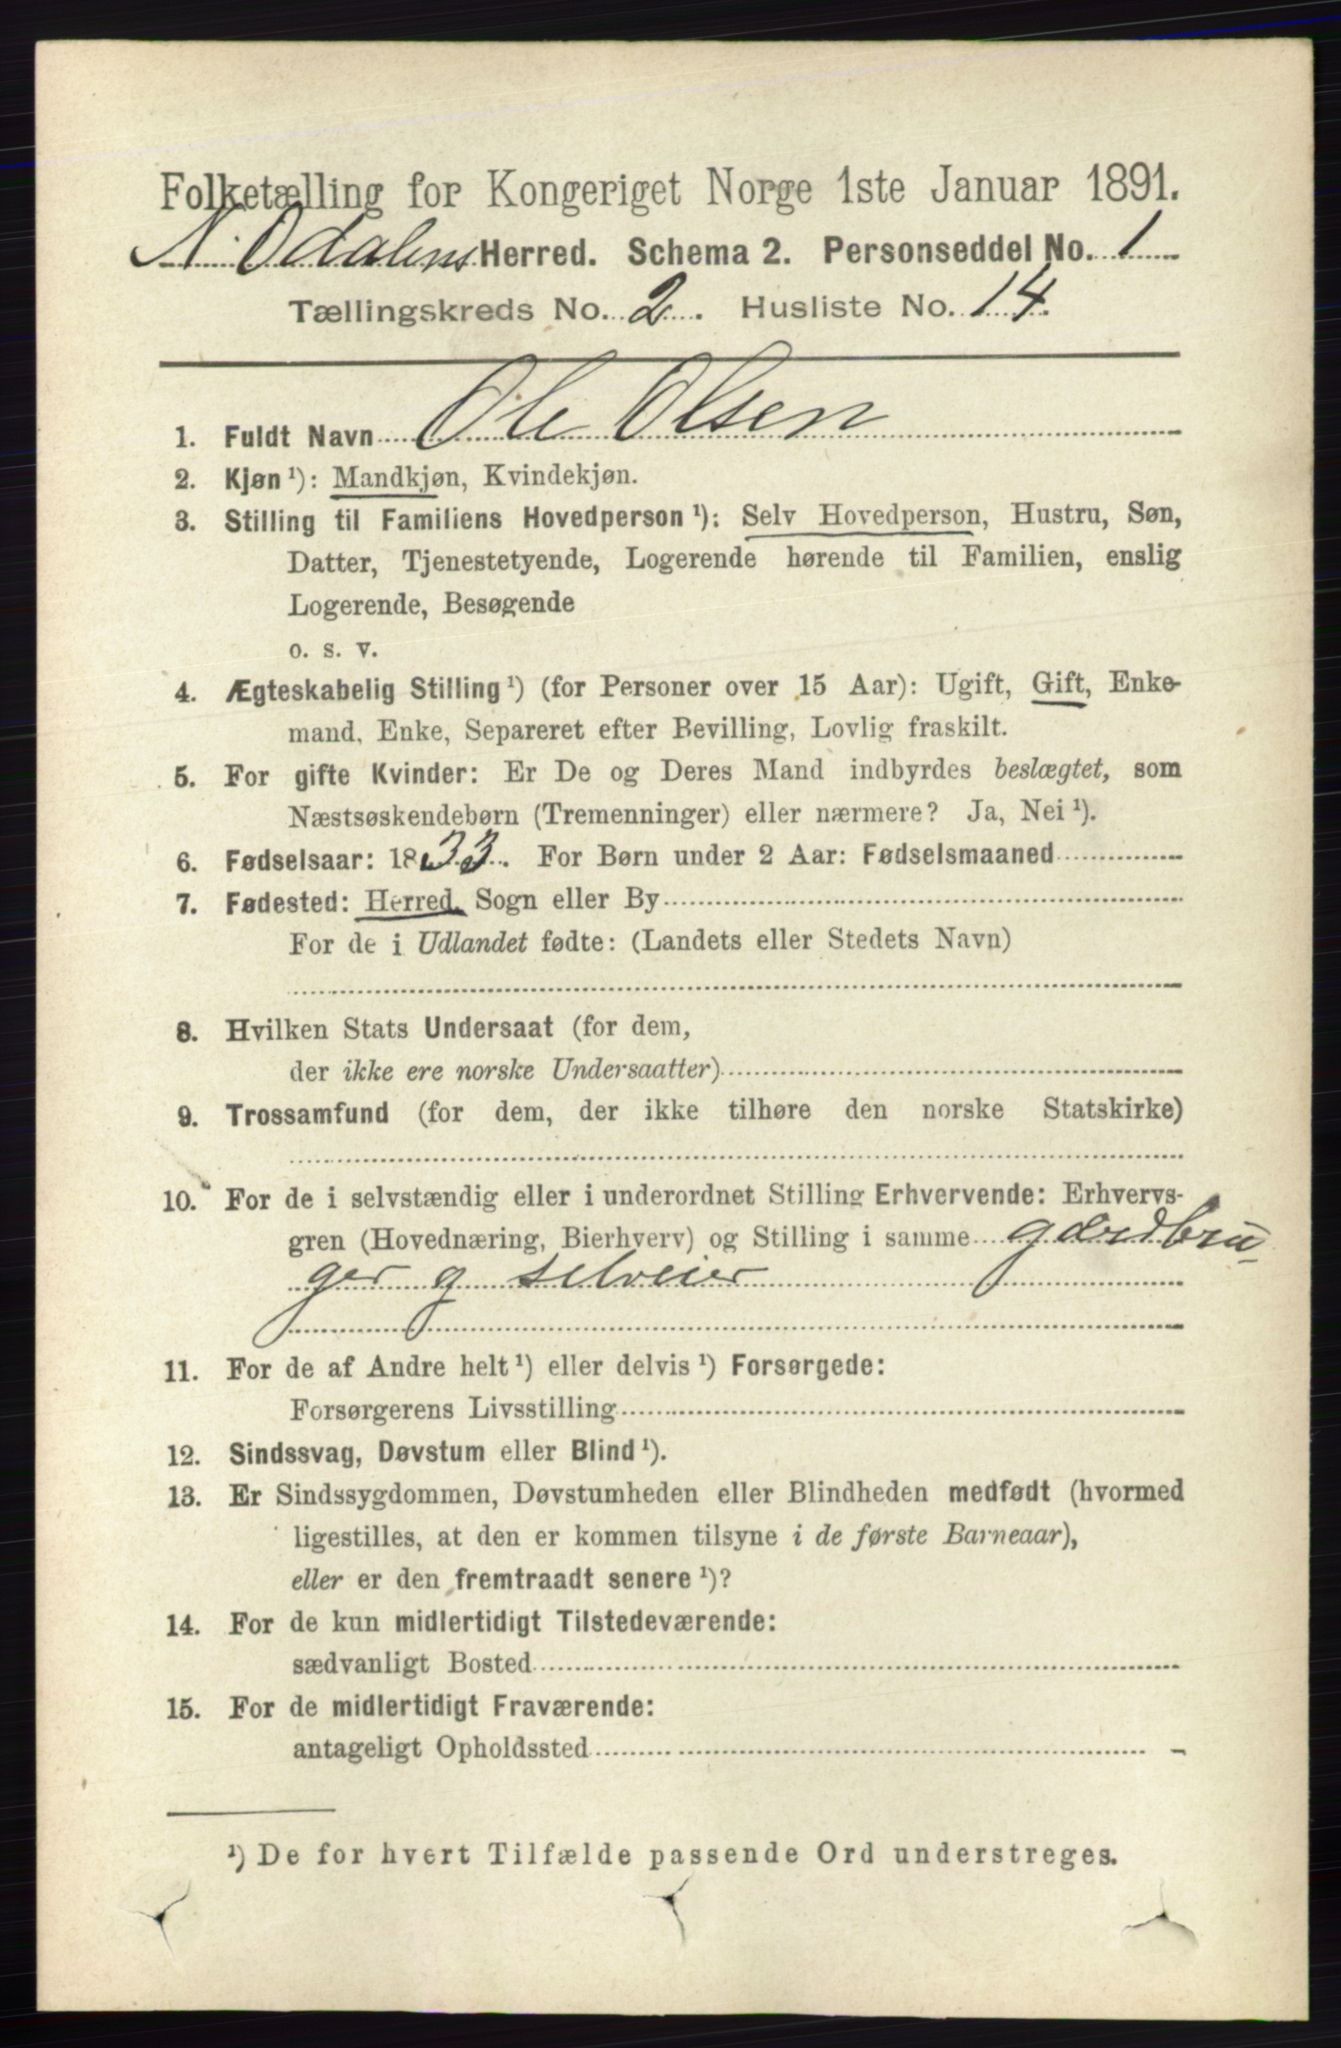 Folketælling for Kongeriget Norge 1ste Januar 1891.
N. Odalens Herred. Schema 2. Personseddel No. 1
Tællingskreds No. 2. Husliste No. 14.
1. Fuldt Navn Ole Olsen
2. Kjøn ¹): Mandkjøn, Kvindekjøn.
3. Stilling til Familiens Hovedperson ¹): Selv Hovedperson, Hustru, Søn,
Datter, Tjenestetyende, Logerende hørende til Familien, enslig
Logerende, Besøgende
o. s. v.
4. Ægteskabelig Stilling ¹) (for Personer over 15 Aar): Ugift, Gift, Enke-
mand, Enke, Separeret efter Bevilling, Lovlig fraskilt.
5. For gifte Kvinder: Er De og Deres Mand indbyrdes beslægtet, som
Næstsøskendebørn (Tremenninger) eller nærmere? Ja, Nei ¹).
6. Fødselsaar: 1833. For Børn under 2 Aar: Fødselsmaaned
7. Fødested: Herred, Sogn eller By
For de i Udlandet fødte: (Landets eller Stedets Navn)
8. Hvilken Stats Undersaat (for dem,
der ikke ere norske Undersaatter)
9. Trossamfund (for dem, der ikke tilhøre den norske Statskirke)
10. For de i selvstændig eller i underordnet Stilling Erhvervende: Erhvervs-
gren (Hovednæring, Bierhverv) og Stilling i samme gardbru-
ger g selveier
11. For de af Andre helt ¹) eller delvis ¹) Forsørgede:
Forsørgerens Livsstilling
12. Sindssvag, Døvstum eller Blind ¹).
13. Er Sindssygdommen, Døvstumheden eller Blindheden medfødt (hvormed
ligestilles, at den er kommen tilsyne i de første Barneaar),
eller er den fremtraadt senere ¹)?
14. For de kun midlertidigt Tilstedeværende:
sædvanligt Bosted
15. For de midlertidigt Fraværende:
antageligt Opholdssted
¹) De for hvert Tilfælde passende Ord understreges.